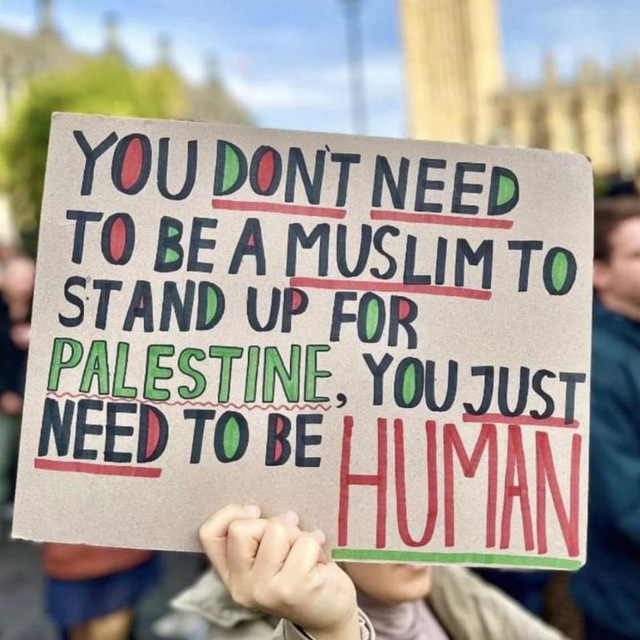 YOU DON'T NEED
TO BE A MUSLIM TO
STAND UP FOR
PALESTINE, YOU JUST
NEED TO BE HUMAN